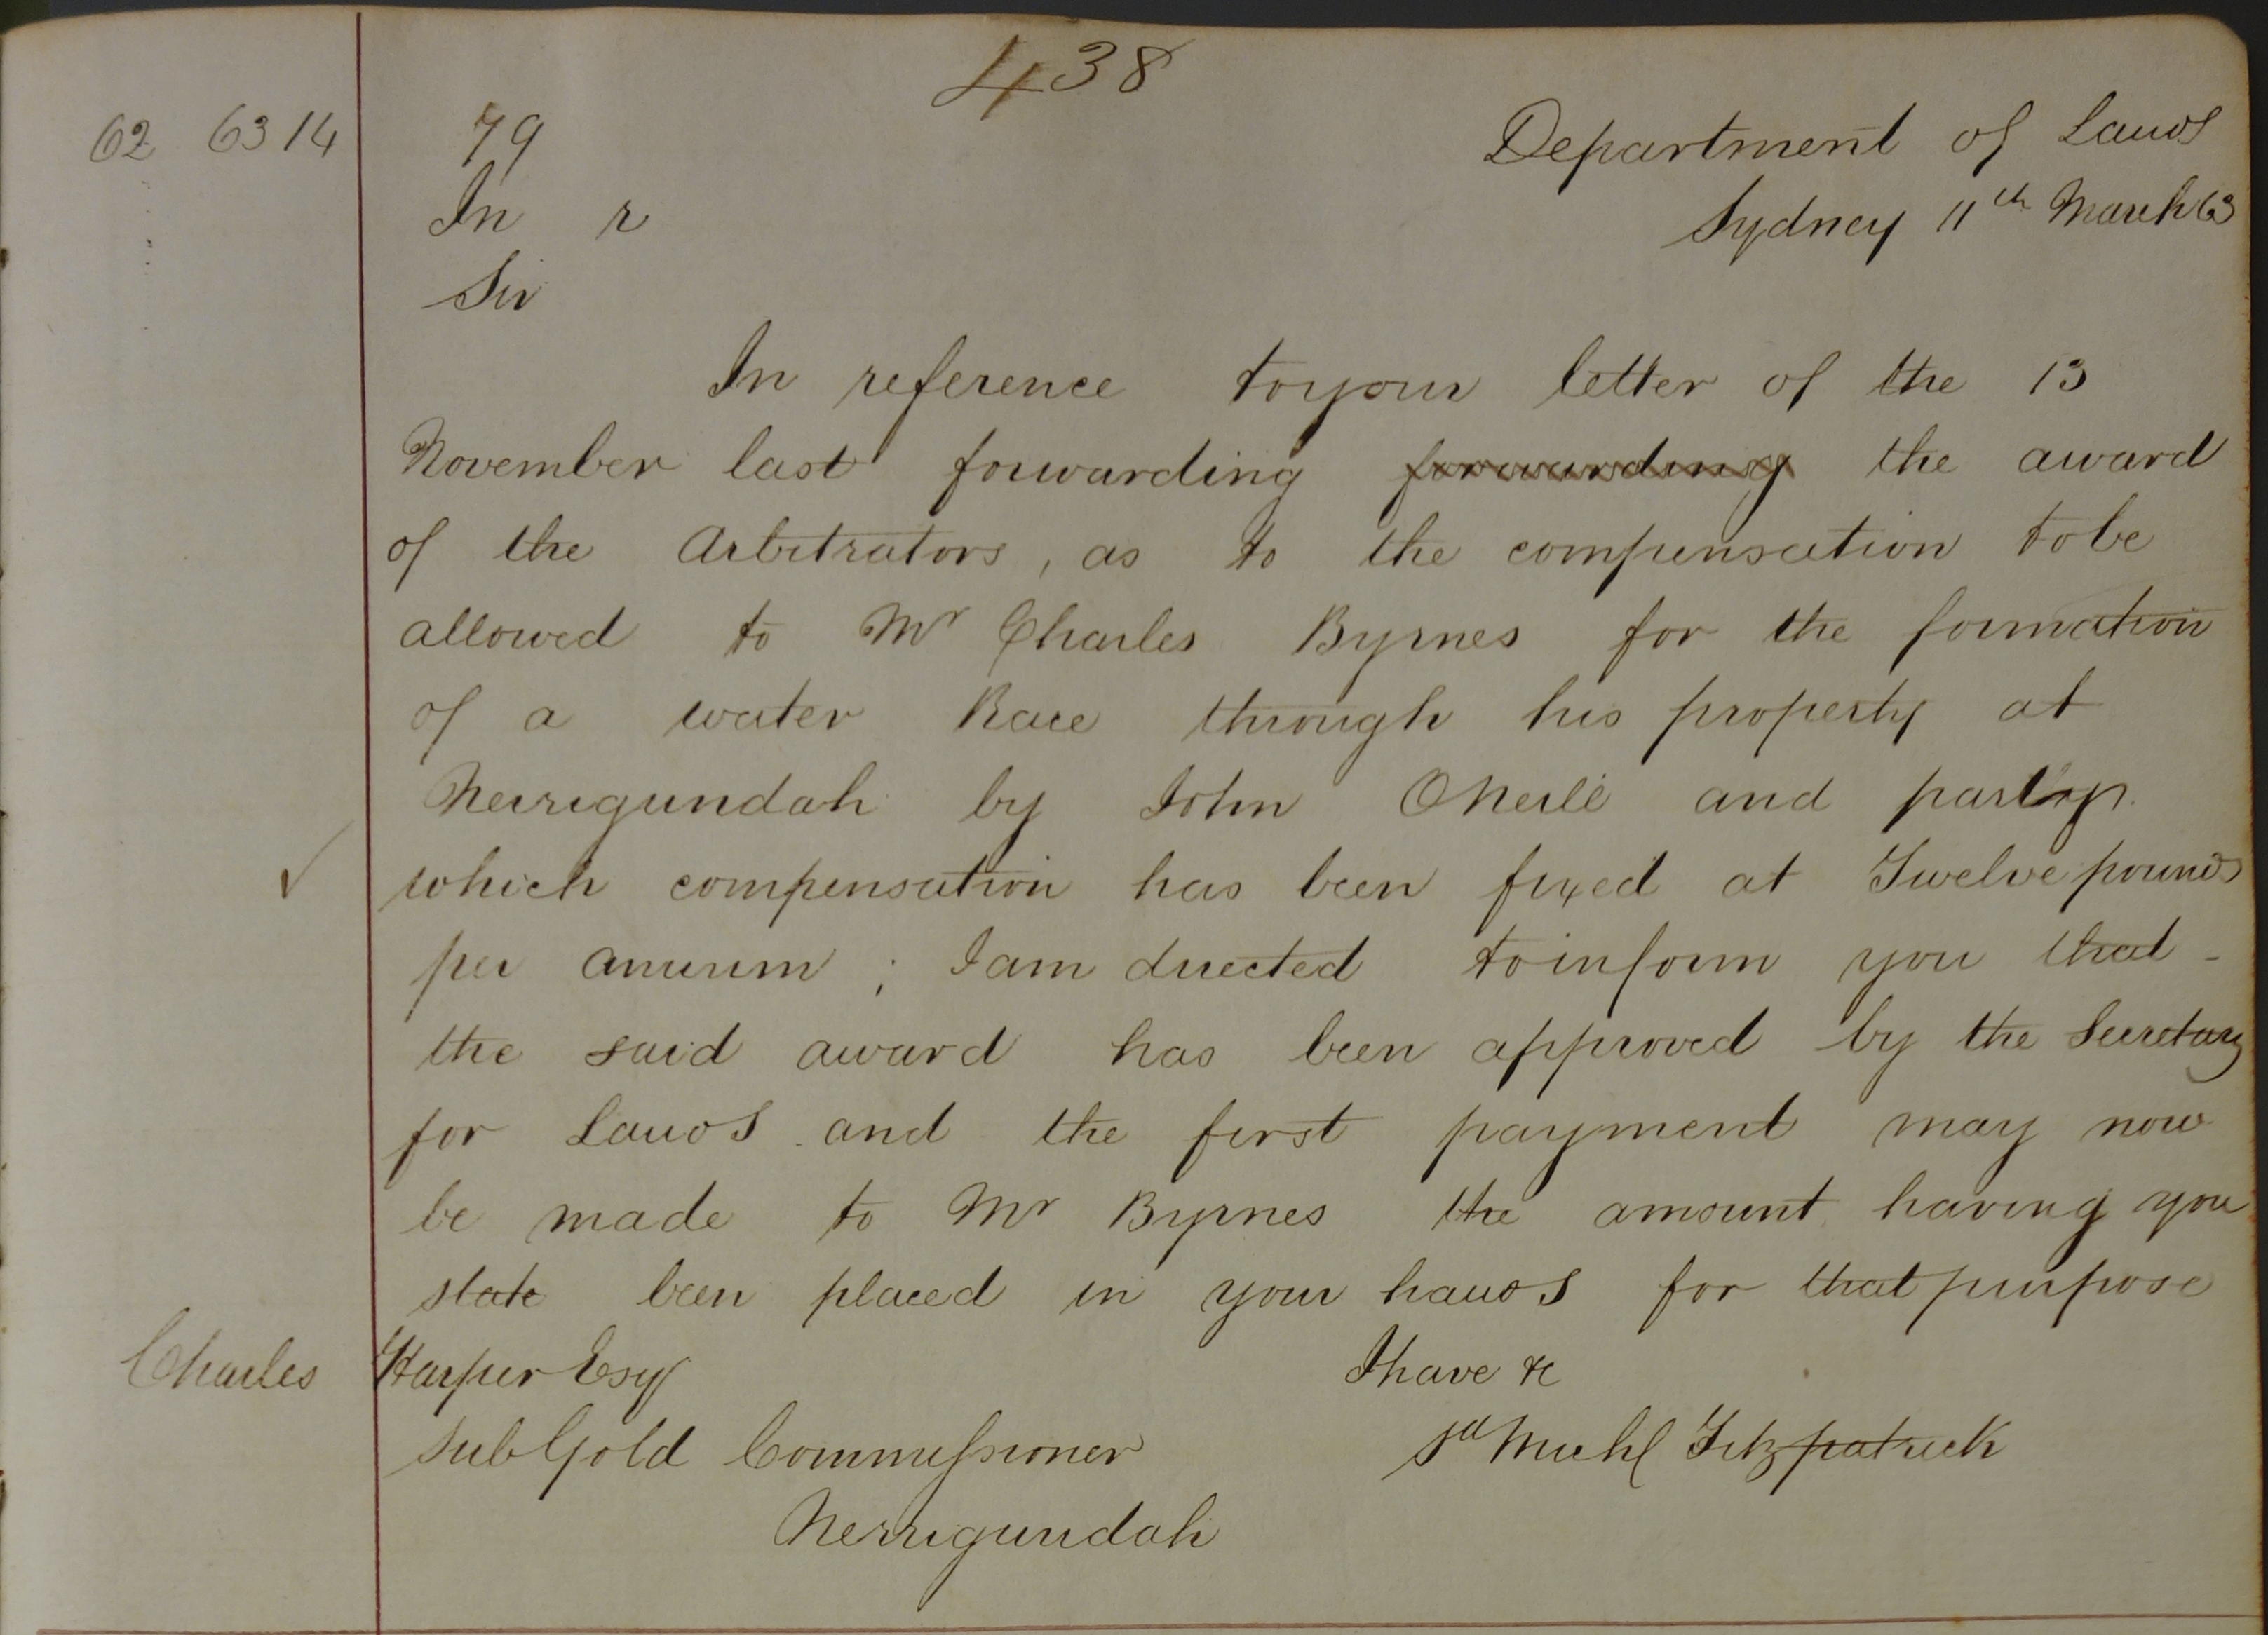 438
62 6314 79 Department of Lands
In r Sydney 11th March 63
Sir
In reference to your letter of the 13
November last forwarding forwarding the award
of the Arbitrators, as to the compensation to be
allowed to Mr Charles Byrnes for the formation
of a water Race through his property at
Nerrigundah by John ONeile and party
which compensation has been fixed at Twelve pounds
per annum; I am directed to inform you that
the said award has been approved by the Secretary
for Lands and the first payment may now
be made to Mr Byrnes the amount having you
state been placed in your hands for that purpose
Charles Harper Esq I have &c
Sub Gold Commissioner sd Michl Fitzpatrick
Nerrigundah